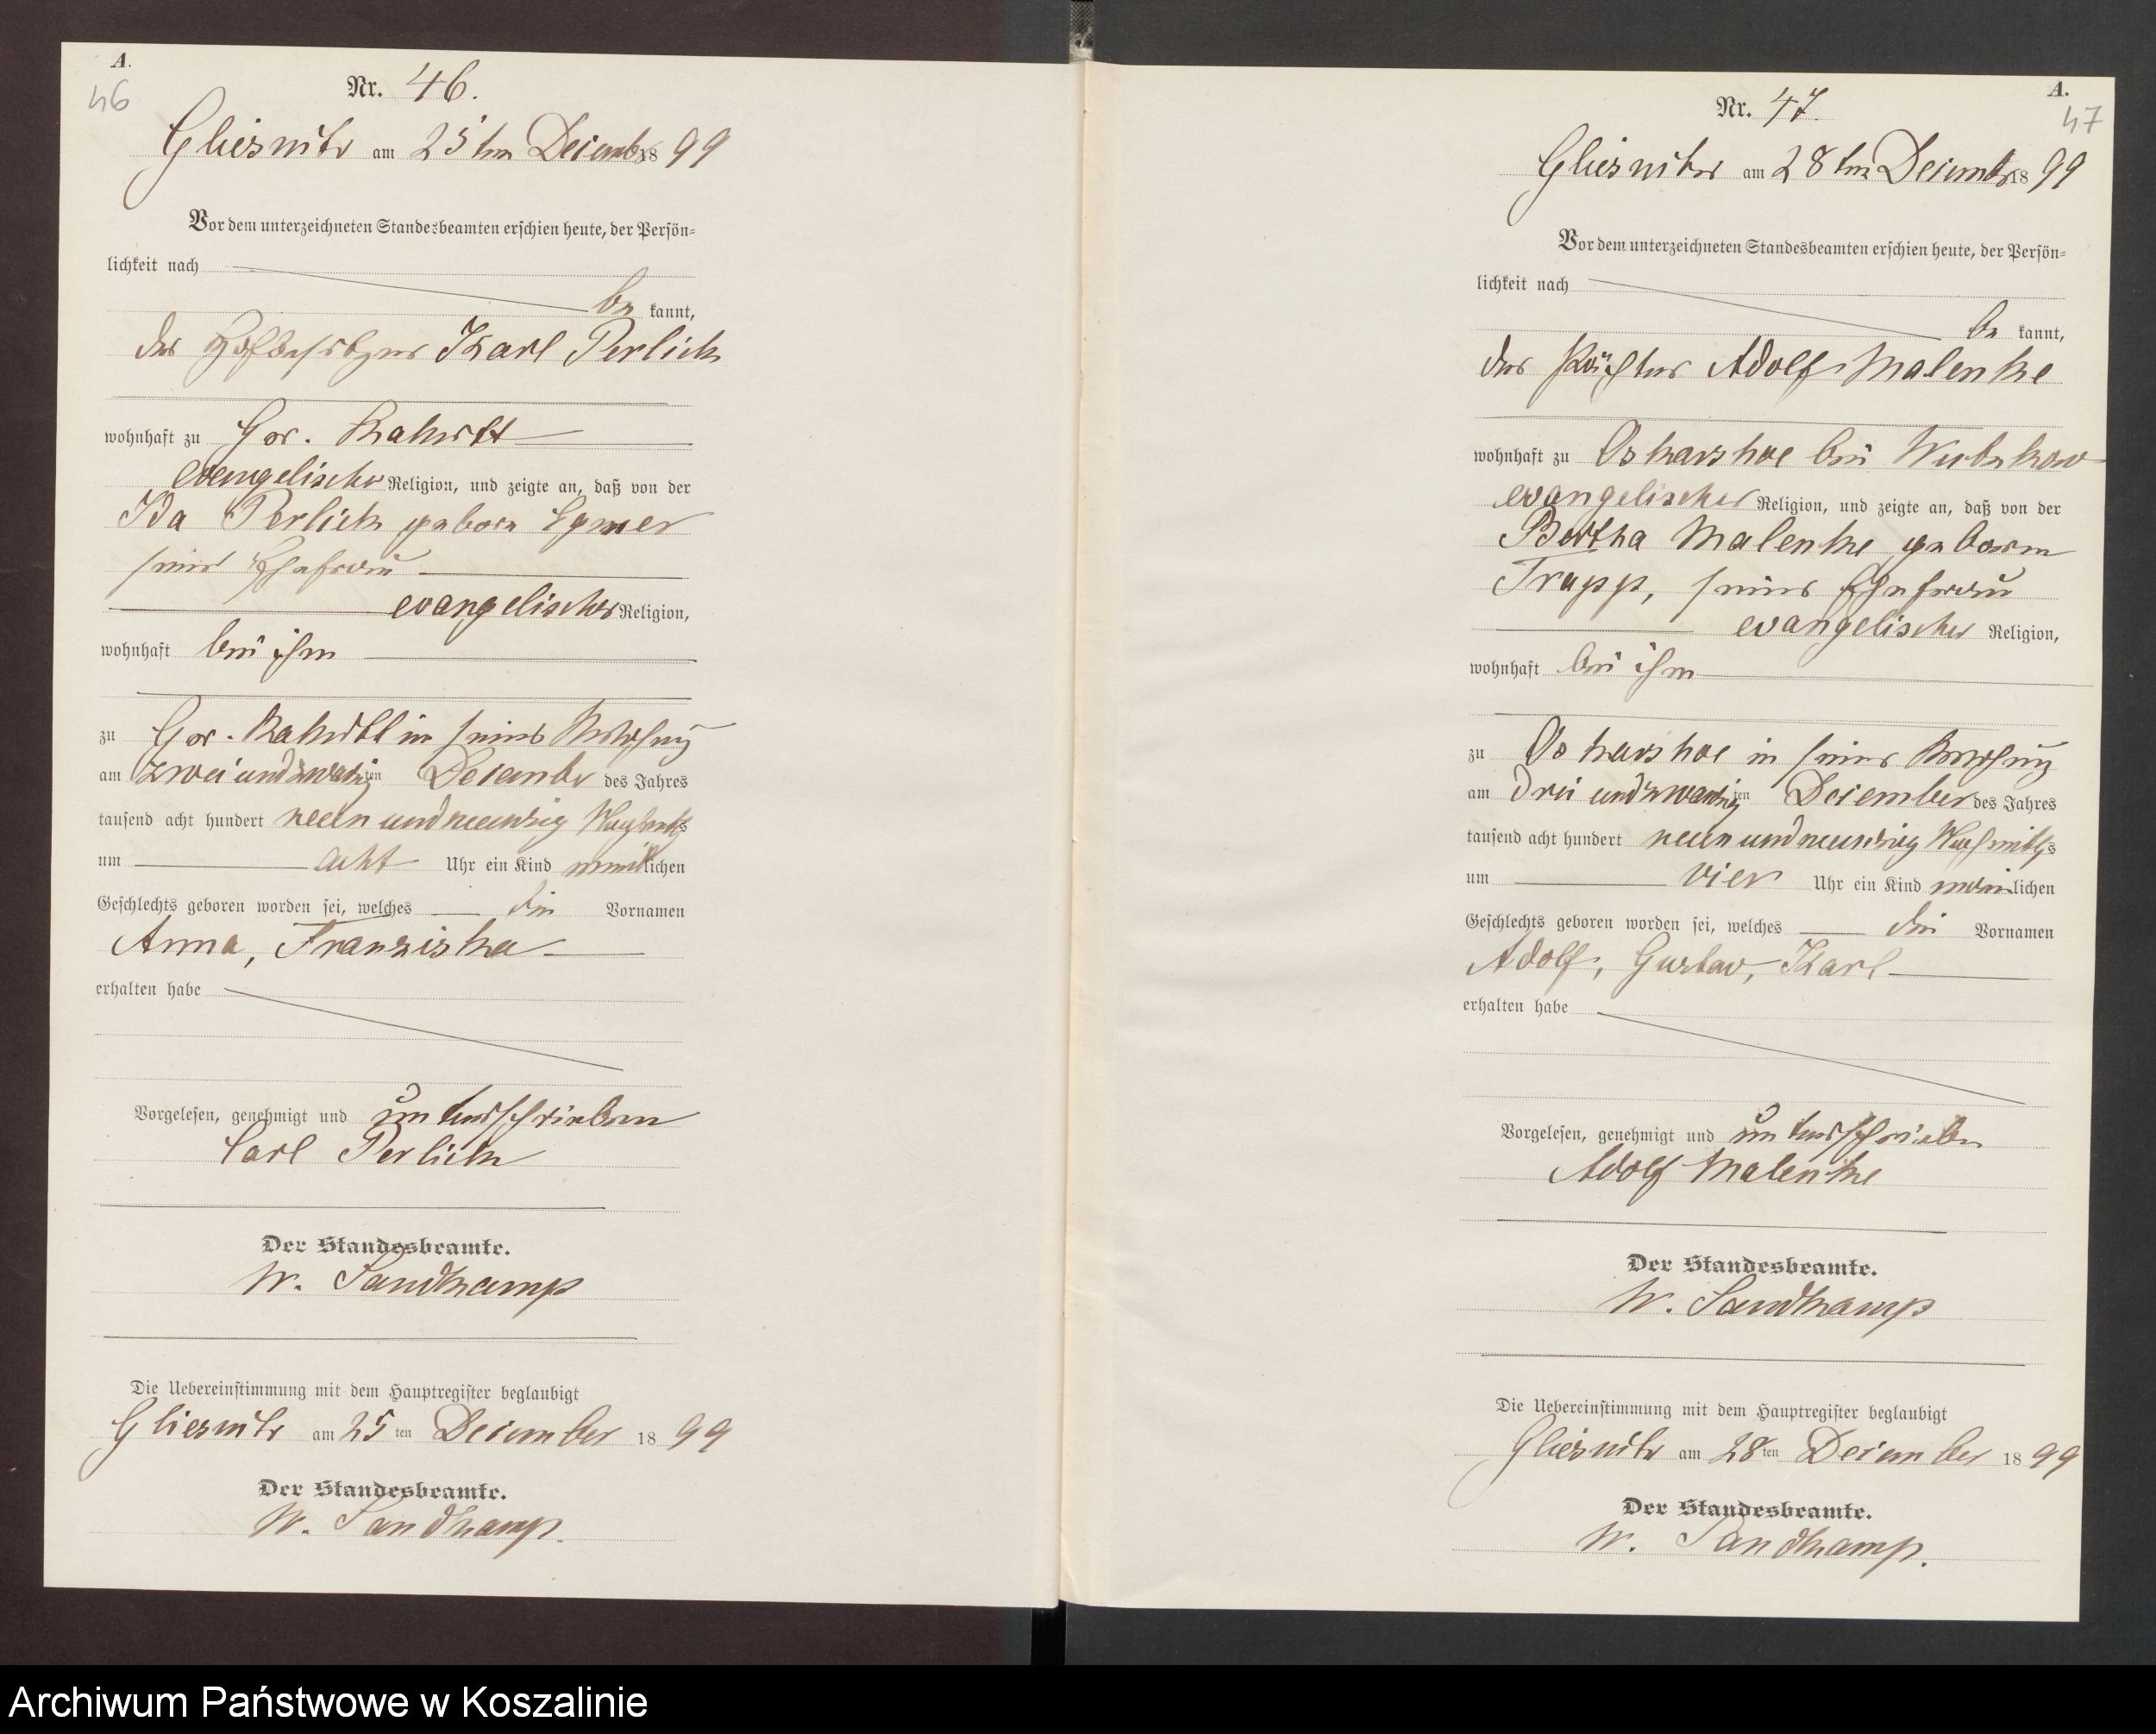 A.
46
Nr. 46.
Gliesnitz am 25ten Decembr 1899
Vor dem unterzeichneten Standesbeamten erschien heute, der Persön=
lichkeit nach
be kannt,
der Hofbesitzer Karl Perlick
wohnhaft zu Gr. Rakitt
evangelischer Religion, und zeigte an, daß von der
Ida Perlick geboren
seiner Ehefrau
evangelischer Religion,
wohnhaft bei ihm
zu Gr. Rakitt in seiner Wohnung
am zwei und zwanzigten December des Jahres
tausend acht hundert neun und neunzig
um acht Uhr ein Kind weiblichen
Geschlechts geboren worden sei, welches die Vornamen
Anna, Franziska
erhalten habe
Vorgelesen, genehmigt und unterschrieben
Carl Perlick
Der Standesbeamte.
W. Sandkamp
Die Uebereinstimmung mit dem Hauptregister beglaubigt
Gliesnitz am 25ten December 1899
Der Standesbeamte.
W. Sandkamp.
A.
47
Nr. 47.
Gliesnitz am 28ten Decembr 1899
Vor dem unterzeichneten Standesbeamten erschien heute, der Persön=
lichkeit nach
be kannt,
der Pächter Adolf Malenke
wohnhaft zu Oskarshoe bei
evangelischer Religion, und zeigte an, daß von der
Bertha Malenke geboren
Trapp, seiner Ehefrau
evangelischer Religion,
wohnhaft bei ihm
zu Oskarshoe in seiner Wohnung
am drei und zwanzigten December des Jahres
tausend acht hundert neun und neunzig Nachmittgs
um vier Uhr ein Kind männlichen
Geschlechts geboren worden sei, welches die Vornamen
Adolf, Gustav, Karl
erhalten habe
Vorgelesen, genehmigt und unterschrieben
Adolf Malenke
Der Standesbeamte.
W. Sandkamp
Die Uebereinstimmung mit dem Hauptregister beglaubigt
Gliesnitz am 28ten December 1899
Der Standesbeamte.
W. Sandkamp.
Archiwum Państwowe w Koszalinie